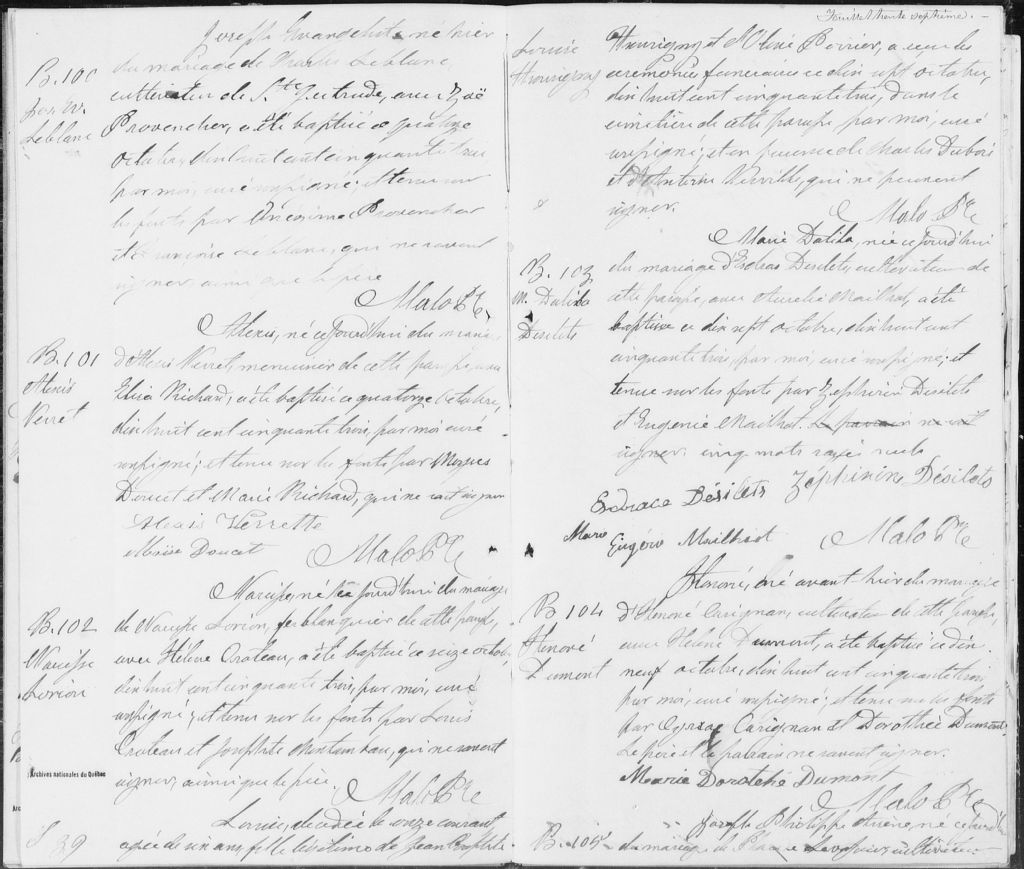 Joseph Wrandehite né hier
B. 100
du mariage de Charles Leblanc,
cultivateur de Ste Gertrude, avec Zoë
Jos. W.
Leblanc
Provencher, a été baptisé ce quatorze
octobre, dix huit cent cinquante trois
par moi, curé soussigné; et tenu sur
les fonts par Onésime Provencher
et Leblanc, qui ne savent
signer, ainsi que le père
Malo Ptre
Alexis, né ce jourd'hui du mariage
B. 101
Alexis
Verret
d'Alexis Verret, menuisier de cette paroisse, avec
Eliza Richard, a été baptisé ce quatorze Octobre,
dix huit cent cinquante trois, par moi curé
soussigné; et tenu sur les fonts par Moyses
Doucet et Marie Richard, qui ne sait signer
Alexis Verrette
Moïse Doucet
Malo Ptre
Narcisse, né ce jourd'hui du mariage
B. 102
Narcisse
Lorion
de Narcisse Lorion, ferblanquier de cette paroisse,
avec Hélène Croteau, a été baptisé ce seize octobre,
dix huit cent cinquante trois, par moi, curé
soussigné; et tenu sur les fonts par Louis
Croteau et Josephte Montambau, qui ne savent
signer, ainsi que le père.
Malo Ptre
Archives nationales du Québec
Louise, décédée le onze courant
S 39
agée de un ans, fille légitime de Jean Baptiste
Feuillet trente septième.
Louise
Thourigny
Thourigny et d'Olive Poirier, a reçu les
cérémonies funéraires ce dix sept octobre,
dix huit cent cinquante trois, dans le
cimetière de cette paroisse par moi, curé
soussigné; et en présence de Charles Dubois
et d'Antoine Verville, qui ne peuvent
signer.
Malo Ptre
Marie Dalila, née ce jourd'hui
B. 103
M. Dalila
Desilets
du mariage d'Esdras Desilets, cultivateur de
cette paroisse, avec Aurelie Mailhot, a été
baptisée ce dix sept octobre, dix huit cent
cinquante trois, par moi, curé soussigné; et
tenue sur les fonts par Zephirin Desilets
et Eugenie Mailhot. Le parrain ne sait
signer. cinq mots rayés nuls
Esdrace Désilets Zéphirine Désilets
Marie Eugénie Mailhiot
Malo Ptre
Honoré, né avant-hier du mariage
B 104
Honoré
Dumont
d'Honoré Carignan, cultivateur de cette paroisse,
avec Hélène Dumont, a été baptisé ce dix
neuf octobre, dix huit cent cinquante trois,
par moi, curé soussigné; et tenu sur les fonts
par Carignan et Dorothée Dumont.
Le père et le parrain ne savent signer.
Marie Dorothé Dumont
Malo Ptre
Joseph Philippe né ce jourd'hui
B. 105
du mariage de Levasseur, cultivateur